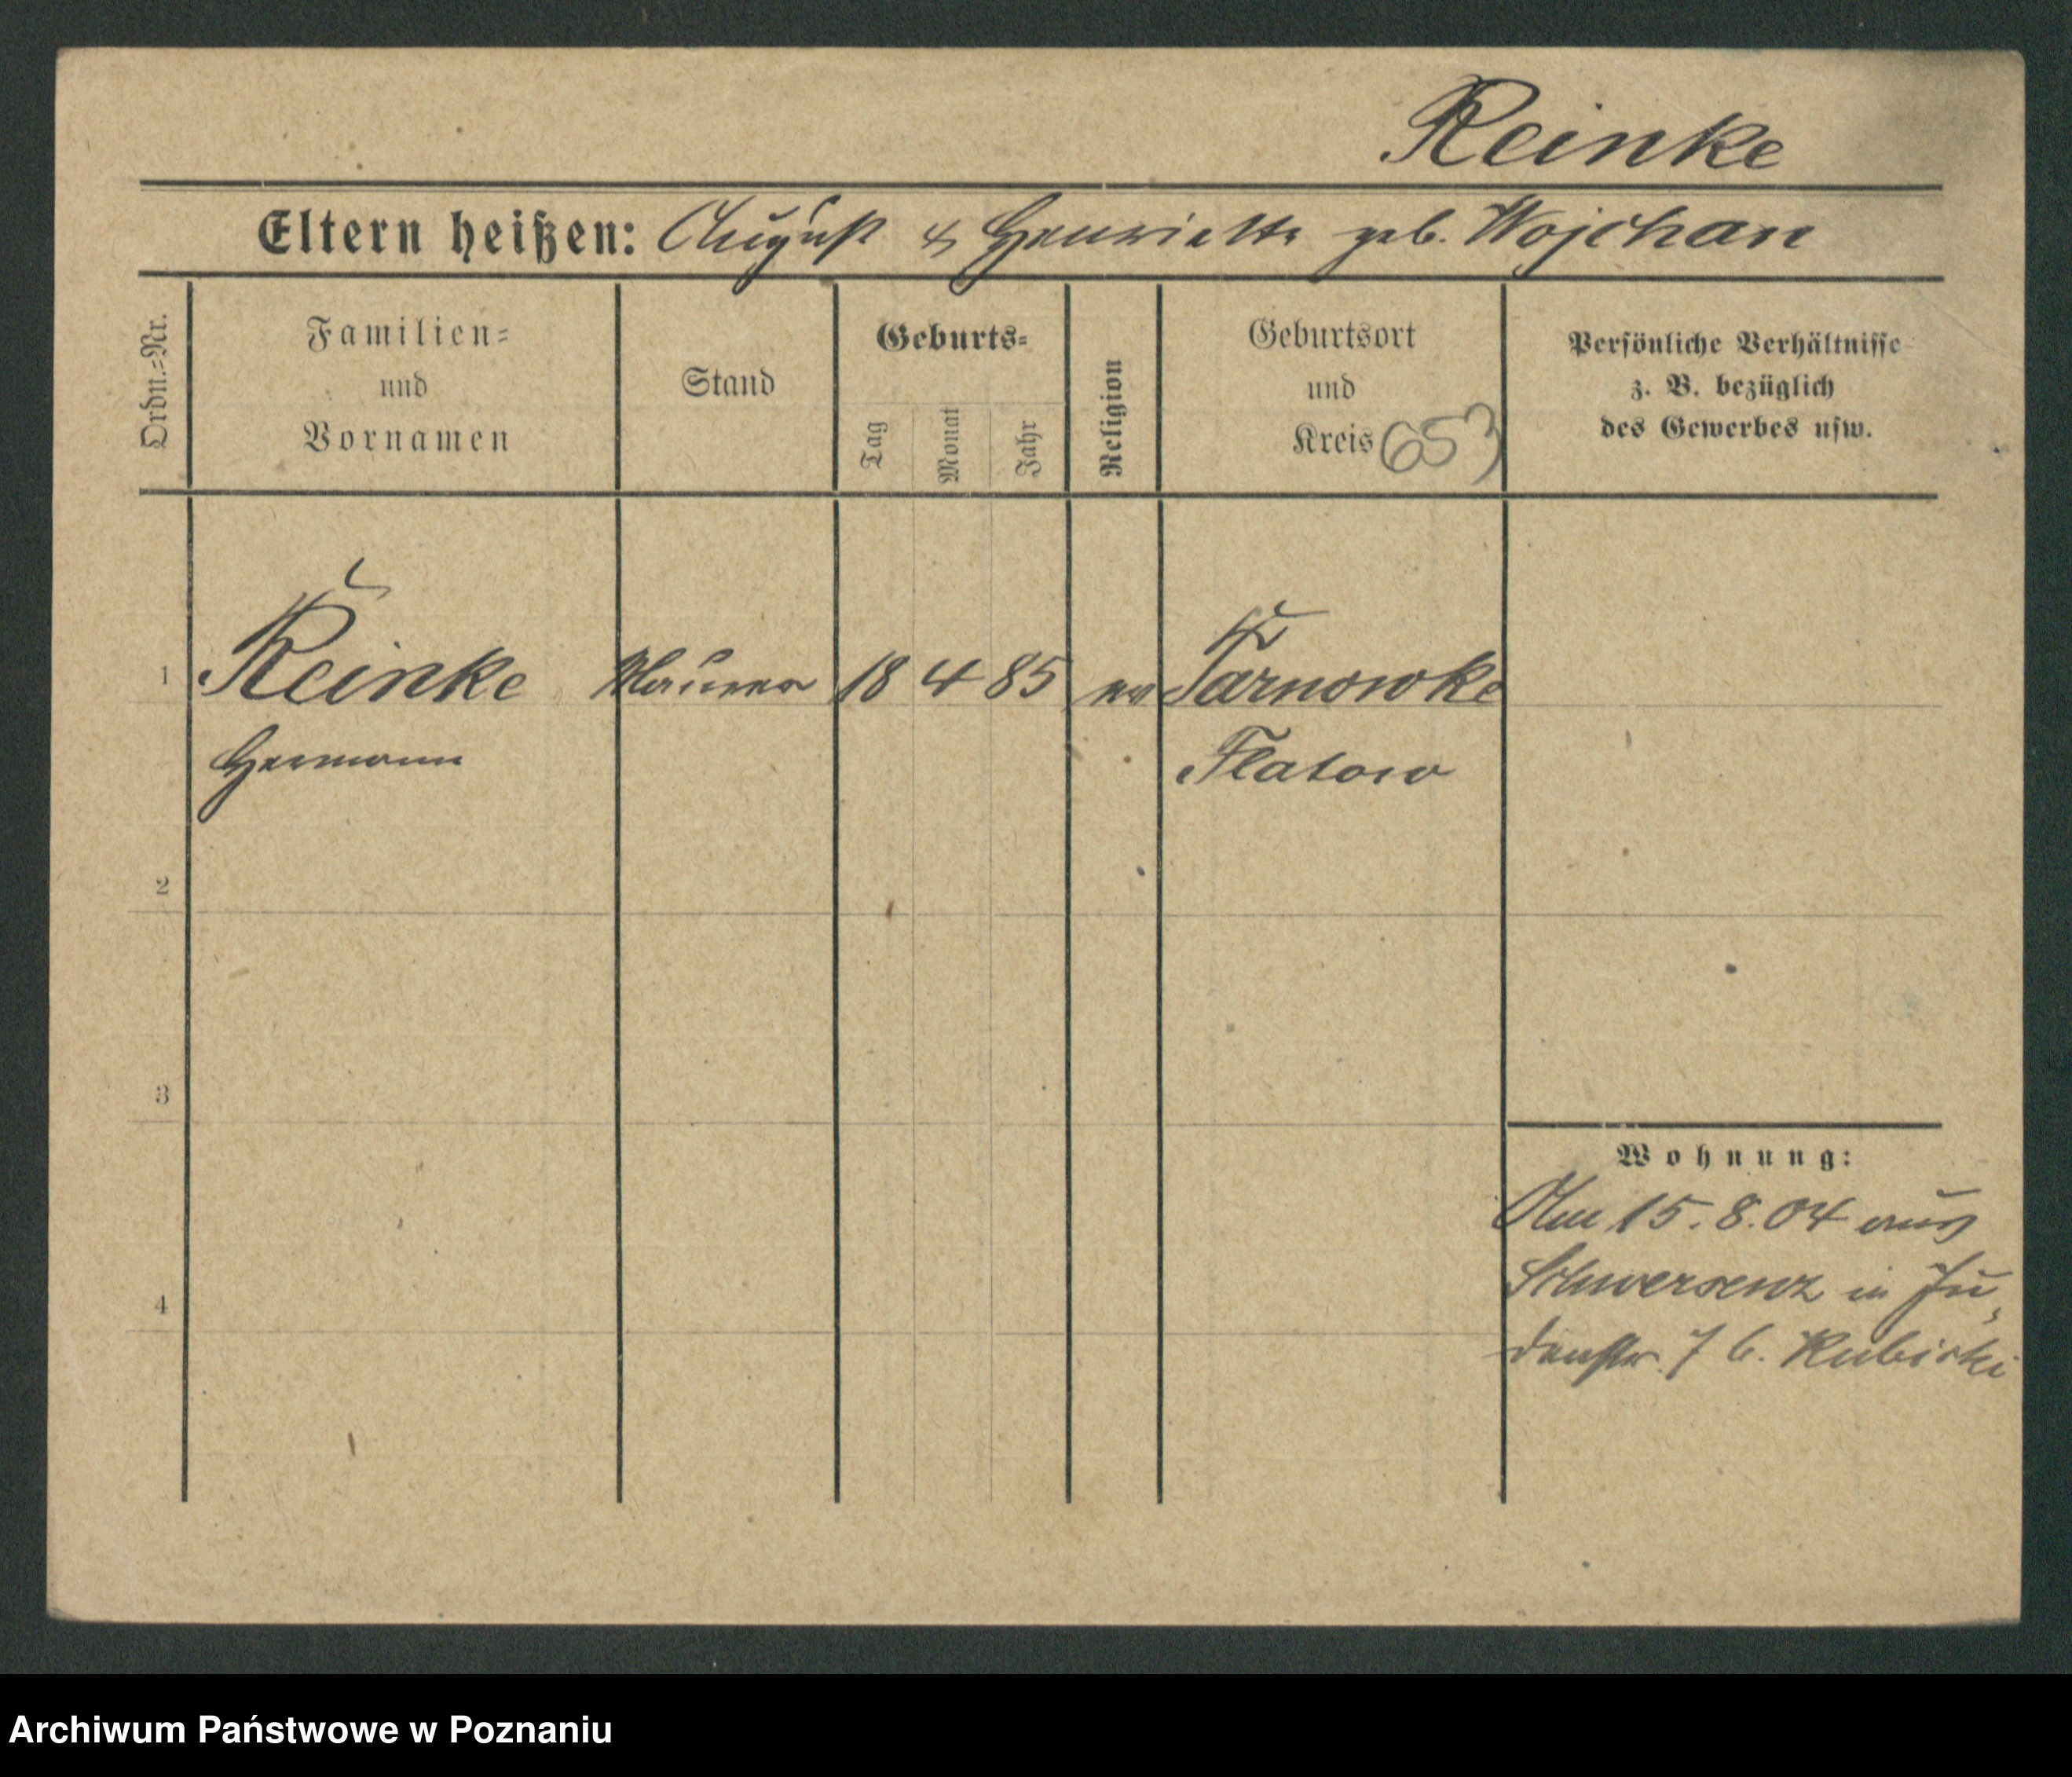 Reinke
Eltern heißen: August & Henriette geb. Wojchan
Ordn.=Nr.
Familien=
und
Vornamen
Stand
Geburts=
Tag
Monat
Jahr
Religion
Geburtsort
und
Kreis 653
Persönliche Verhältnisse
z. B. bezüglich
des Gewerbes usw.
1 Reinke Maurer 18 4 85 ev Tarnowke
Hermann Flatow
2
3
Wohnung:
Am 15. 8. 04 aus
Schwersenz in Ju-
4
denstr. 7 b. Rubicki
Archiwum Państwowe w Poznaniu